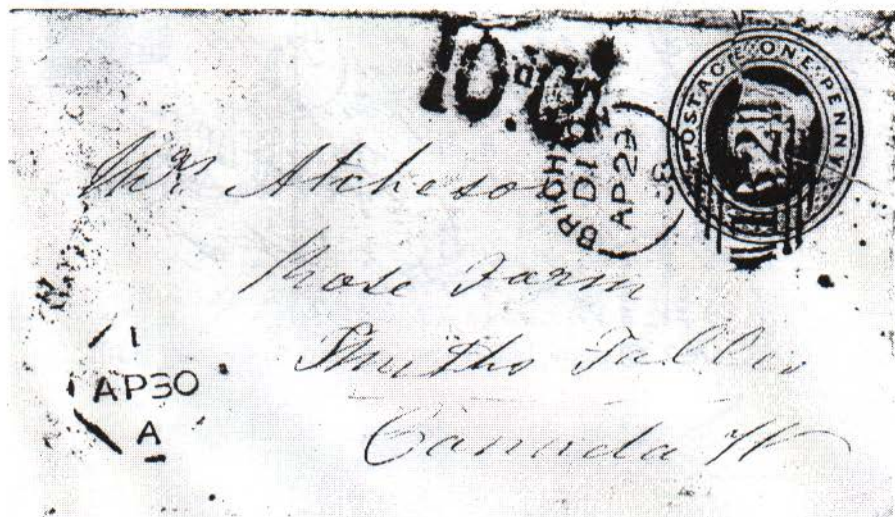 10.d
POSTAGE ONE PENNY
BRIGHTON
D1
AP 29
Mrs Atcheson
Rose Farm
Smiths Falls
Canada W
1
AP30
A